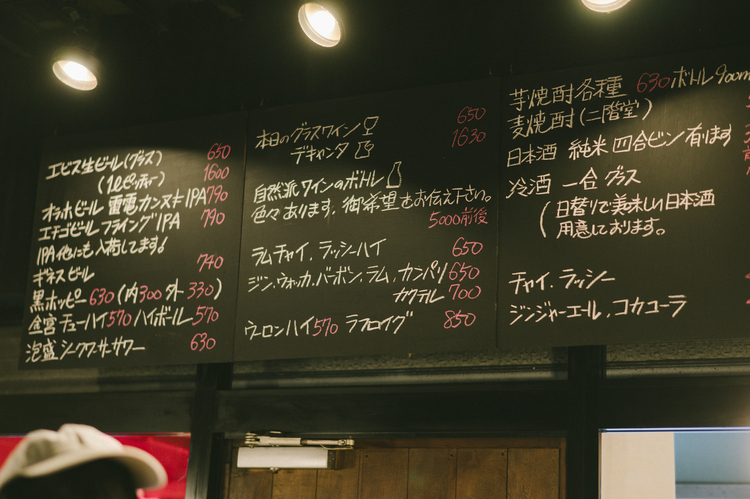 エビス生ビール(グラス) 650
(1ℓピッチャー) 1600
オッホビール 雷電カンヌキIPA 790
エチゴビール フライングIPA 790
IPA他にも入荷してます!
ギネスビール 740
黒ホッピー 630 (内300 外330)
金宮チューハイ570 ハイボール570
泡盛シークワーサーサワー 630
本日のグラスワイン 650
デキャンタ 1630
自然派ワインのボトル
色々あります。御希望もお伝え下さい。
5000前後
ラムチャイ、ラッシーハイ 650
ジン、ウォッカ、バーボン、ラム、カンパリ650
カクテル 700
ウーロンハイ570 ラフロイグ 850
芋焼酎各種 630 ボトル900m
麦焼酎(二階堂)
日本酒 純米 四合ビン有ります
冷酒 一合グラス
(日替りで美味しい日本酒
用意しております。
チャイ、ラッシー
ジンジャーエール、コカコーラ